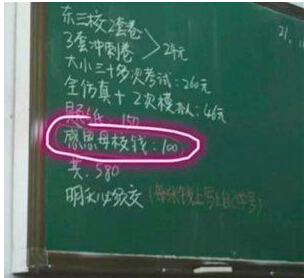 东三校2套卷
3套冲刺卷 24元
大小三十多次考试:260元
全仿真+2次模拟:46元
题纸:150
感恩母校钱:100
共:580
明天必须交(每张钱上写上自己学号)
21.